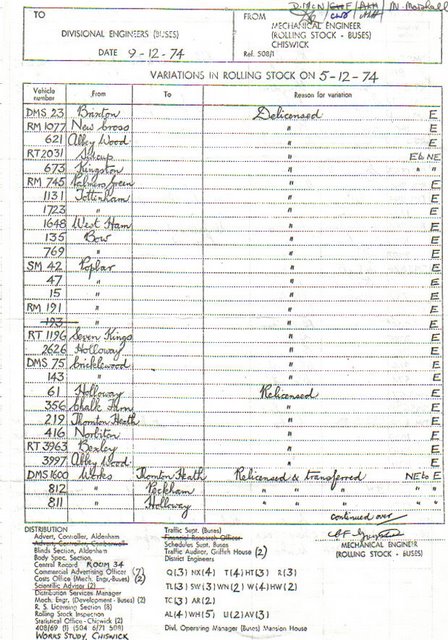 TO
DIVISIONAL ENGINEERS (BUSES)
DATE 9-12-74
FROM
MECHANICAL ENGINEER
(ROLLING STOCK - BUSES)
CHISWICK
Ref. 508/1
M. Marshall
VARIATIONS IN ROLLING STOCK ON 5-12-74
Vehicle number From To Reason for variation
DMS 23 Brixton Delicensed E
RM 1077 New Cross " E
621 Abbey Wood " E
RT 2031 Sidcup " E to NE
673 Kingston " " "
RM 745 Palmers Green " E
1131 Tottenham " E
1723 " " E
1648 West Ham " E
135 Bow " E
769 " " E
SM 42 Poplar " E
47 " " E
15 " " E
RM 191 " " E
193 " " E
RT 1196 Seven Kings " E
2626 Holloway " E
DMS 75 Cricklewood " E
143 " " E
61 Holloway Relicensed E
356 Chalk Farm " E
219 Thornton Heath " E
416 Norbiton " E
RT 3963 Bexley " E
3997 Abbey Wood " E
DMS 1600 Works Thornton Heath Relicensed & transferred NE to E
812 " Peckham " " " " " "
811 " Holloway " " " " " "
continued over
DISTRIBUTION
Advert. Controller, Aldenham
Advert. Controller, Camberwell
Blinds Section, Aldenham
Body Spec. Section,
Central Record ROOM 34
Commercial Advertising Officer (7)
Costs Office (Mech. Engr.-Buses) (2)
Scientific Advisor (2)
Distribution Services Manager
Mech. Engr. (Development - Buses) (2)
R. S. Licensing Section (8)
Rolling Stock Inspection
Statistical Office - Chiswick (2)
408/69 (1) 504 6/71 508)
WORKS STUDY, CHISWICK
Traffic Supt. (Buses)
Financial Research Officer
Schedules Supt. Buses
Traffic Auditor, Griffith House (2)
District Engineers
Q(3) HX(4) T(4) HT(3) R(3)
TL(3) SW(3) WN(2) W(4) HW(2)
TC(3) AR(2)
AL(4) WH(5) U(2) AV(3)
Divl. Operating Manager (Buses) Mansion House
MECHANICAL ENGINEER
(ROLLING STOCK - BUSES)